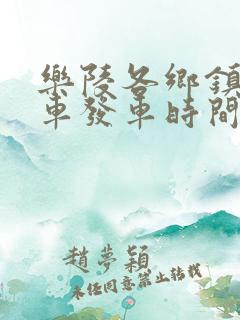 樂陵各鄉鎮
車發車時間
趙夢穎
未经同意禁止转载